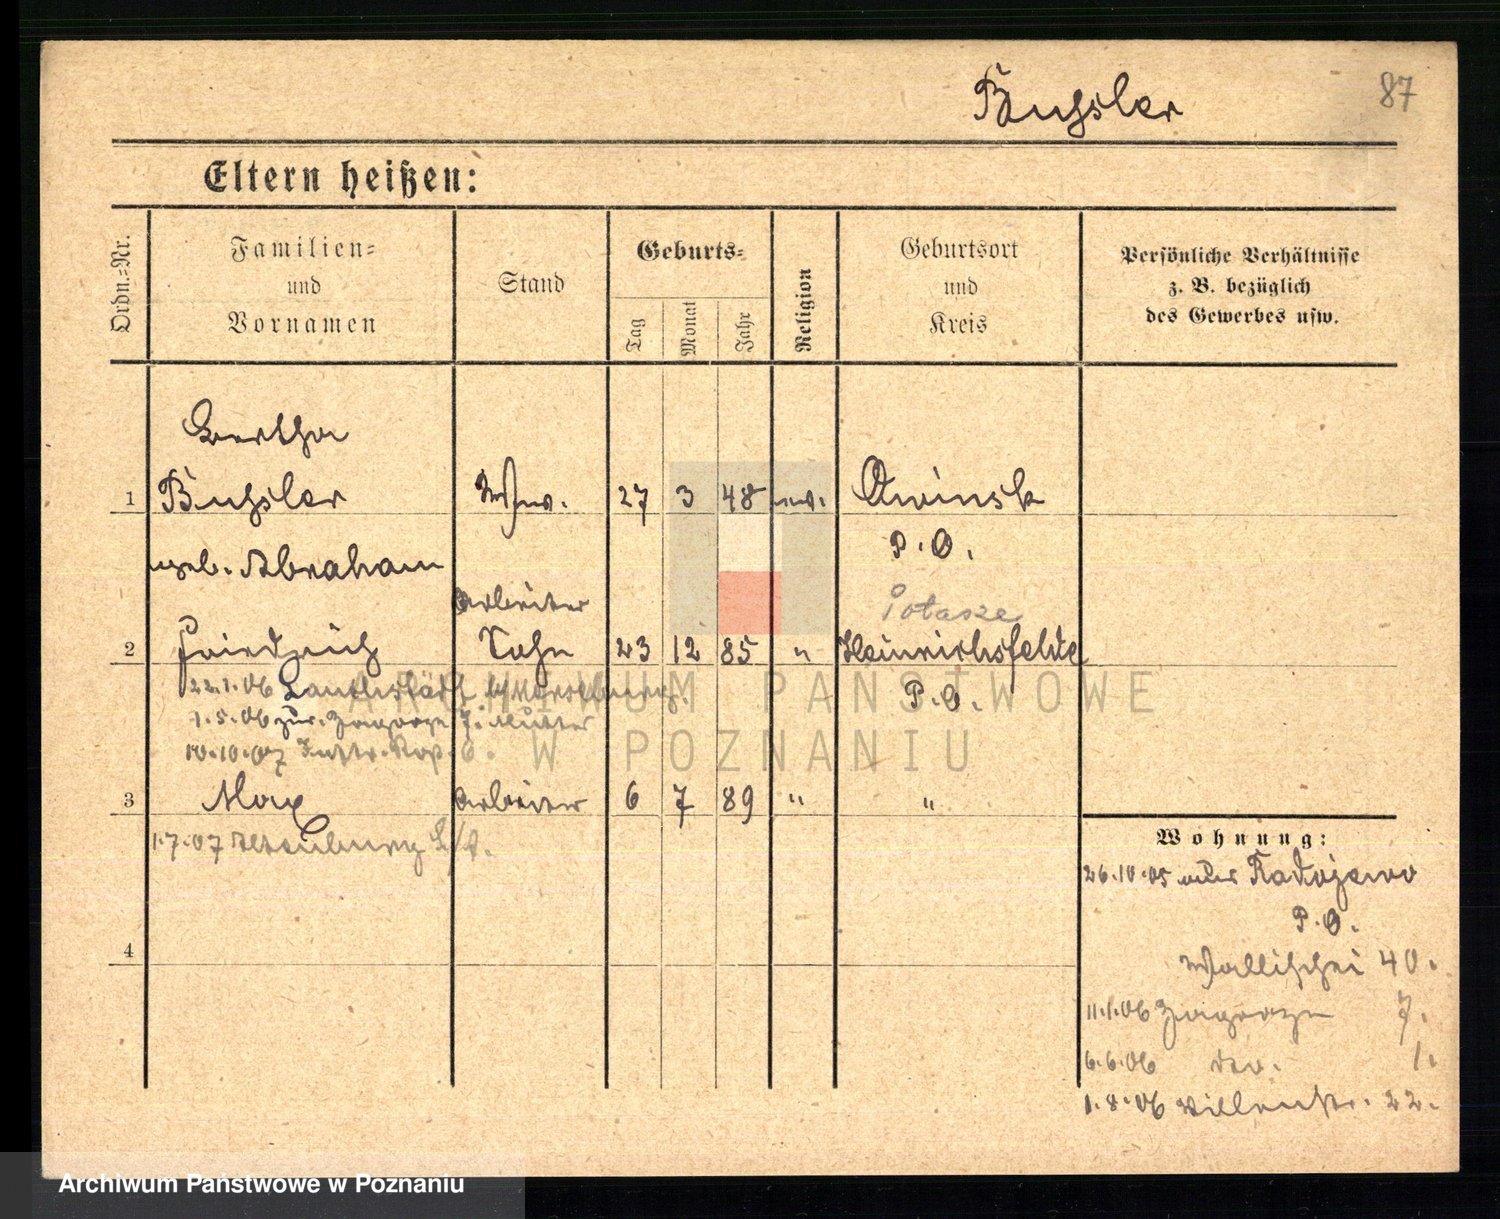 Bußler
87
Eltern heißen:
Ordn.-Nr.
Familien-
und
Vornamen
Stand
Geburts-
Tag
Monat
Jahr
Religion
Geburtsort
und
Kreis
Persönliche Verhältnisse
z. B. bezüglich
des Gewerbes usw.
Bertha
1 Bußler Ww. 27 3 48 ev. Owinsk
geb. Abraham P. O.
Arbeiter Potasze
2 Friedrich Sohn 23 12 85 " Heinrichsfelde
22.1.06 Lauchstädt b/ Merseburg. P. O.
1.5.06 zur. Zagorze 7. Mutter
10.10.07 Inftr. Rgt. 6.
3 Max Arbeiter 6 7 89 " "
1.7.07 Altenburg S/A.
4
Wohnung:
26.10.05 aus Radojewo
P. O.
Wallischei 40.
11.1.06 Zagorze 7.
6.6.06 do. 1.
1.8.06 Villenstr. 22.
ARCHIWUM PAŃSTWOWE
W POZNANIU
Archiwum Państwowe w Poznaniu